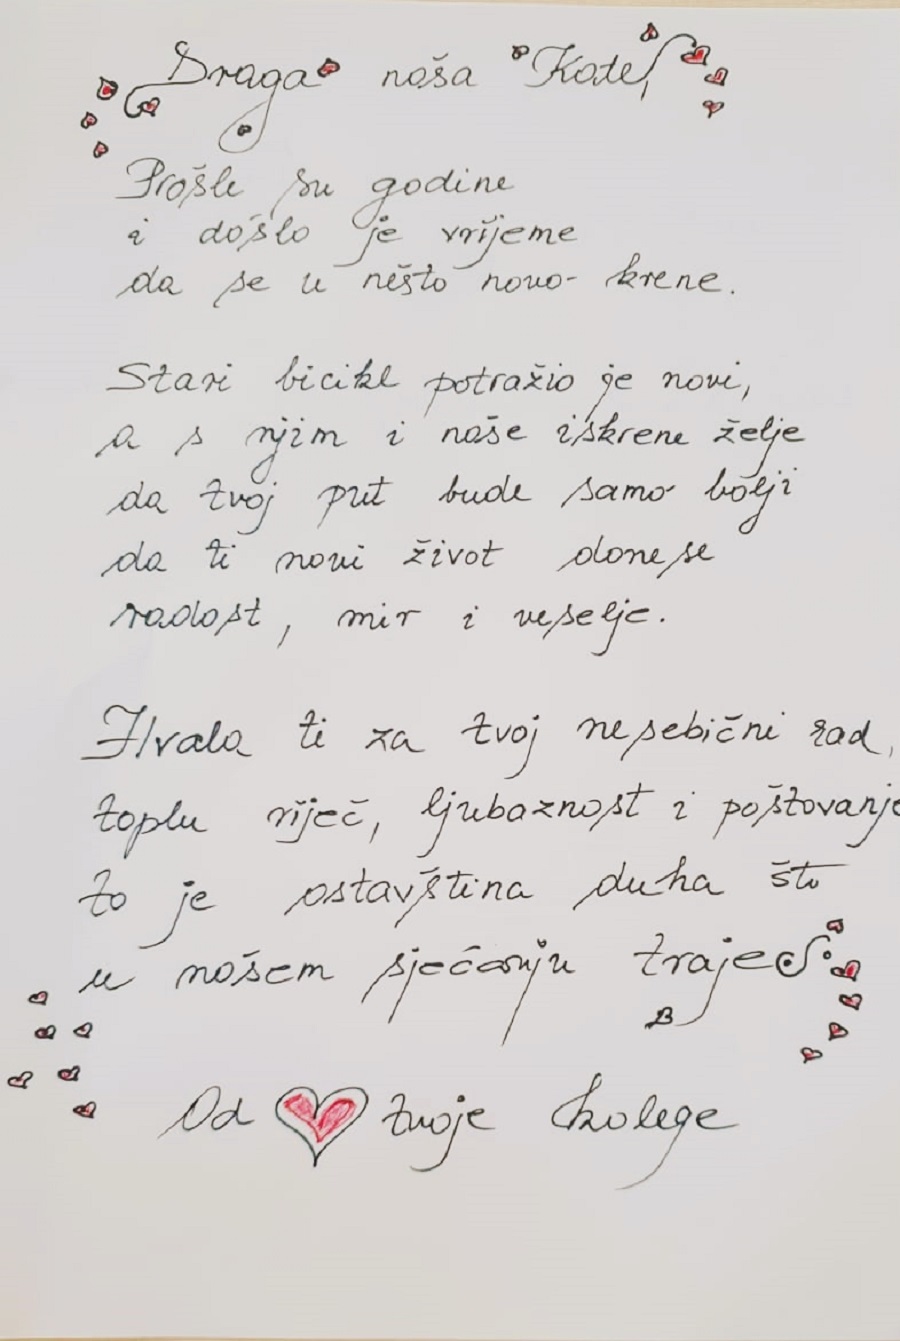 Draga naša Kate,
Prošle su godine
i došlo je vrijeme
da se u nešto novo krene.
Stari bicikl potražio je novi,
a s njim i naše iskrene želje
da tvoj put bude samo bolji
da ti novi život donese
radost, mir i veselje.
Hvala ti za tvoj nesebični rad,
toplu riječ, ljubaznost i poštovanje
to je ostavština duha što
u našem sjećanju traje
Od tvoje kolege